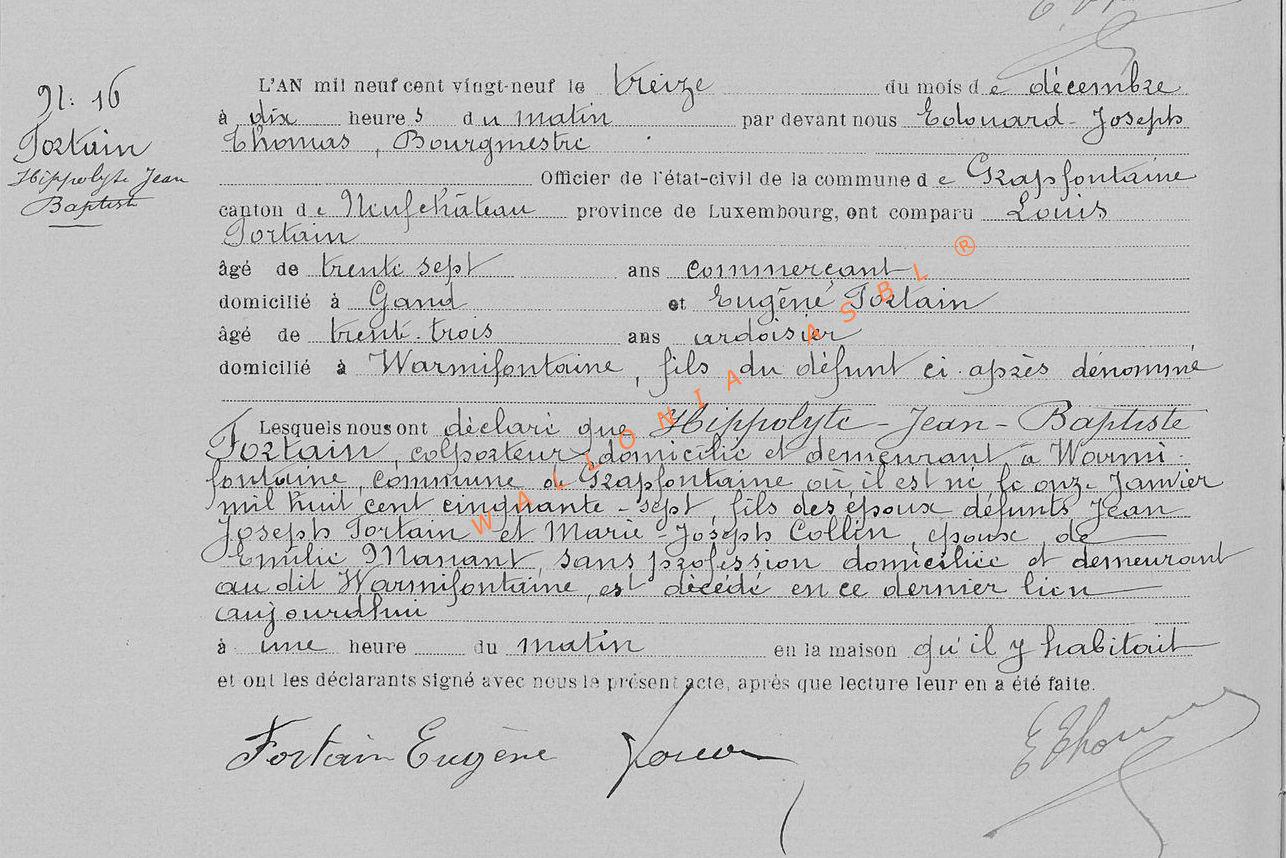 N: 16
Fortain
Hippolyte Jean
Baptiste
L'AN mil neuf cent vingt-neuf le treize du mois de décembre
à dix heures du matin par devant nous Edouard-Joseph
Thomas, Bourgmestre
Officier de l'état-civil de la commune de Grapfontaine
canton de Neufchâteau province de Luxembourg, ont comparu Louis
Fortain
âgé de trente sept ans commerçant
domicilié à Gand et Eugène Fortain
âgé de trente-trois ans ardoisier
domicilié à Warmifontaine, fils du défunt ci-après dénommé
Lesquels nous ont déclaré que Hippolyte-Jean-Baptiste
Fortain, colporteur, domicilié et demeurant à Warmi-
fontaine, commune de Grapfontaine où il est né le onze Janvier
mil huit cent cinquante-sept, fils des époux défunts Jean
Joseph Fortain et Marie-Joseph Collin, époux de
Emilie Manant, sans profession domiciliée et demeurant
au dit Warmifontaine, est décédé en ce dernier lieu
aujourdhui
à une heure du matin en la maison qu'il y habitait
et ont les déclarants signé avec nous le présent acte, après que lecture leur en a été faite.
Fortain Eugène
E Thomas
WALLONIA ASBL ®